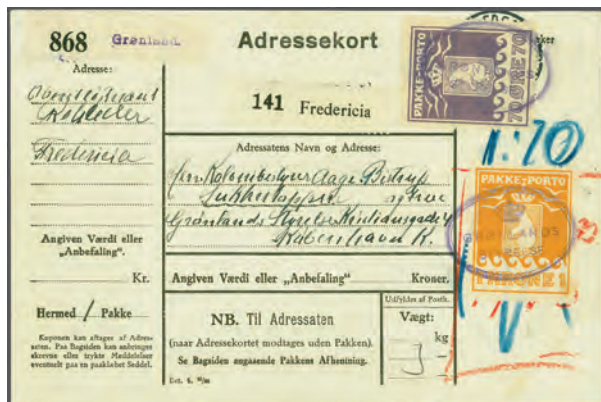 868 Grønland
Adresse:
Fredericia
Angiven Værdi eller
„Anbefaling".
Kr.
Hermed / Pakke
Kuponen kan aftages af Adres-
saten. Paa Bagsiden kan anbringes
skrevne eller trykte Meddelelser
eventuelt paa en paaklæbet Seddel.
Adressekort
141 Fredericia
Adressatens Navn og Adresse:
Kolonibestyrer Aage Bistrup
Sukkertoppen og Frue
Grønlands Styrelse Kristiansgade
København K.
Angiven Værdi eller „Anbefaling" Kroner.
NB. Til Adressaten
(naar Adressekortet modtages uden Pakken).
Se Bagsiden angaaende Pakkens Afhentning.
Udfyldes af Posth.
Vægt:
kg
PAKKE-PORTO
70 ØRE 70
1.70
PAKKE-PORTO
1 KRONE 1